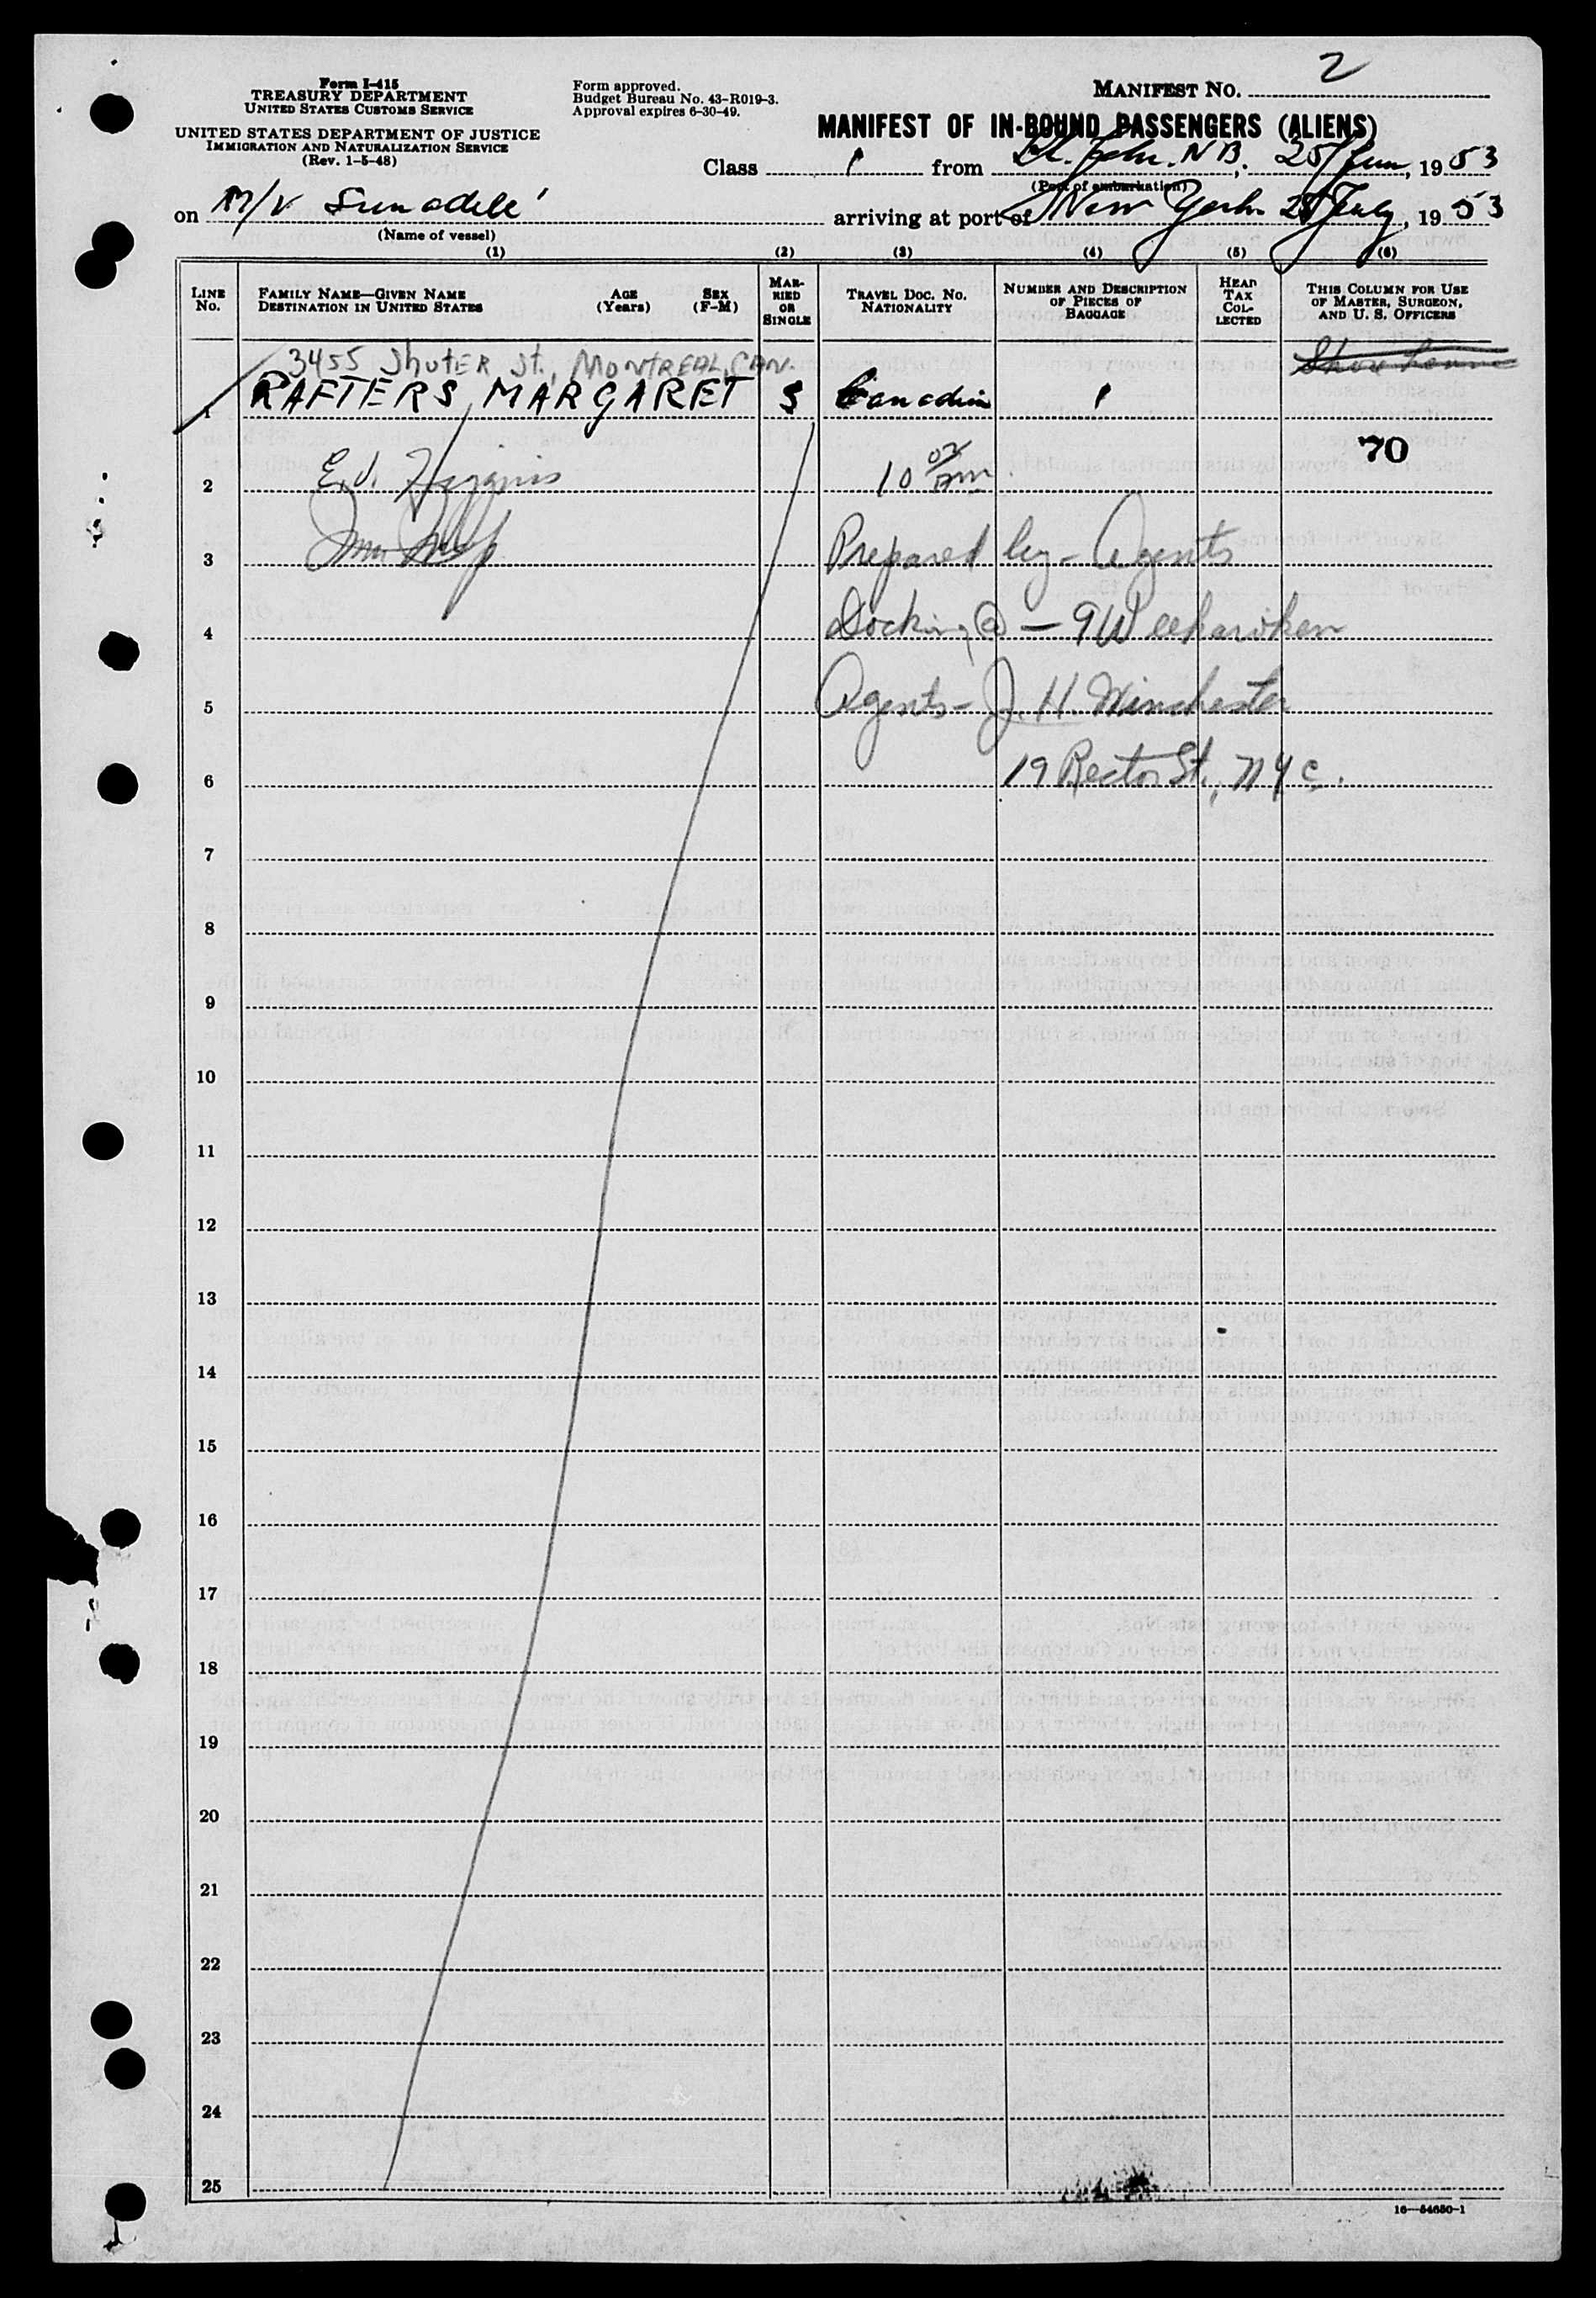 Form I-415
TREASURY DEPARTMENT
UNITED STATES CUSTOMS SERVICE
UNITED STATES DEPARTMENT OF JUSTICE
IMMIGRATION AND NATURALIZATION SERVICE
(Rev. 1-5-48)
Form approved.
Budget Bureau No. 43-R019-3.
Approval expires 6-30-49.
MANIFEST NO. 2
MANIFEST OF IN-BOUND PASSENGERS (ALIENS)
Class 1 from St. John. N B., 25 Jun, 1953
(Port of embarkation)
on M/V Sunadele arriving at port of New York July, 1953
(Name of vessel)
(1) (2) (3) (4) (5) (6)
LINE No.
FAMILY NAME—GIVEN NAME
DESTINATION IN UNITED STATES
AGE (Years)
SEX (F-M)
MARRIED OR SINGLE
TRAVEL DOC. NO. NATIONALITY
NUMBER AND DESCRIPTION OF PIECES OF BAGGAGE
HEAD TAX COLLECTED
THIS COLUMN FOR USE OF MASTER, SURGEON, AND U. S. OFFICERS
3455 Shuter St., MONTREAL, CAN.
1 RAFTERS, MARGARET S Canadian 1
70
2 E.J. Higgins 10 02 am
3 Prepared by - Agents
4 Docking @ - 9 Weehawken
5 Agents - J. H. Winchester
6 19 Rector St., NYC.
7
8
9
10
11
12
13
14
15
16
17
18
19
20
21
22
23
24
25
16—54650-1